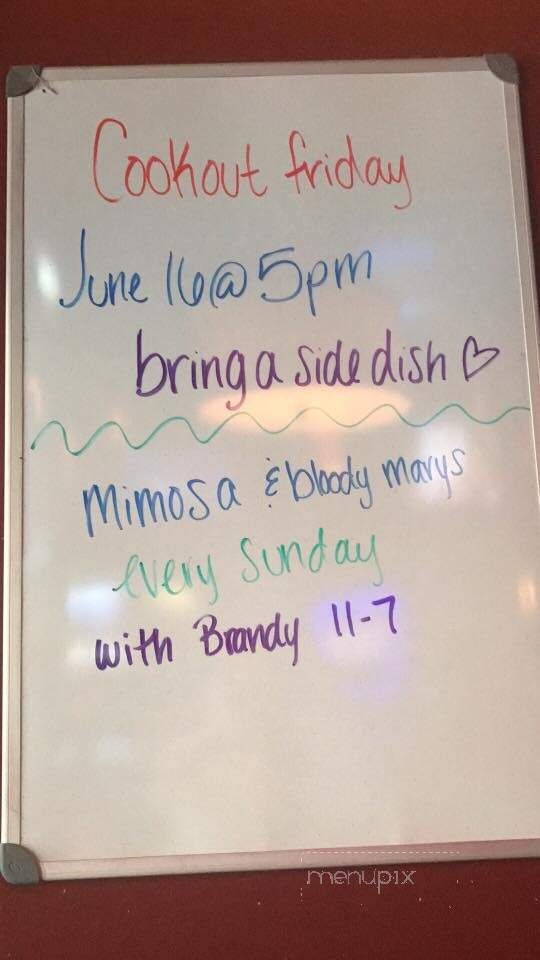 Cookout friday
June 16 @ 5pm
bring a side dish ♡
Mimosa & bloody marys
every Sunday
with Brandy 11-7
menupix